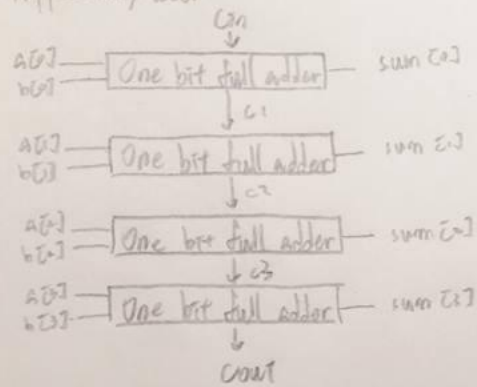 Cin
a[0] One bit full adder sum[0]
b[0]
c1
a[1] One bit full adder sum[1]
b[1]
c2
a[2] One bit full adder sum[2]
b[2]
c3
a[3] One bit full adder sum[3]
b[3]
Cout